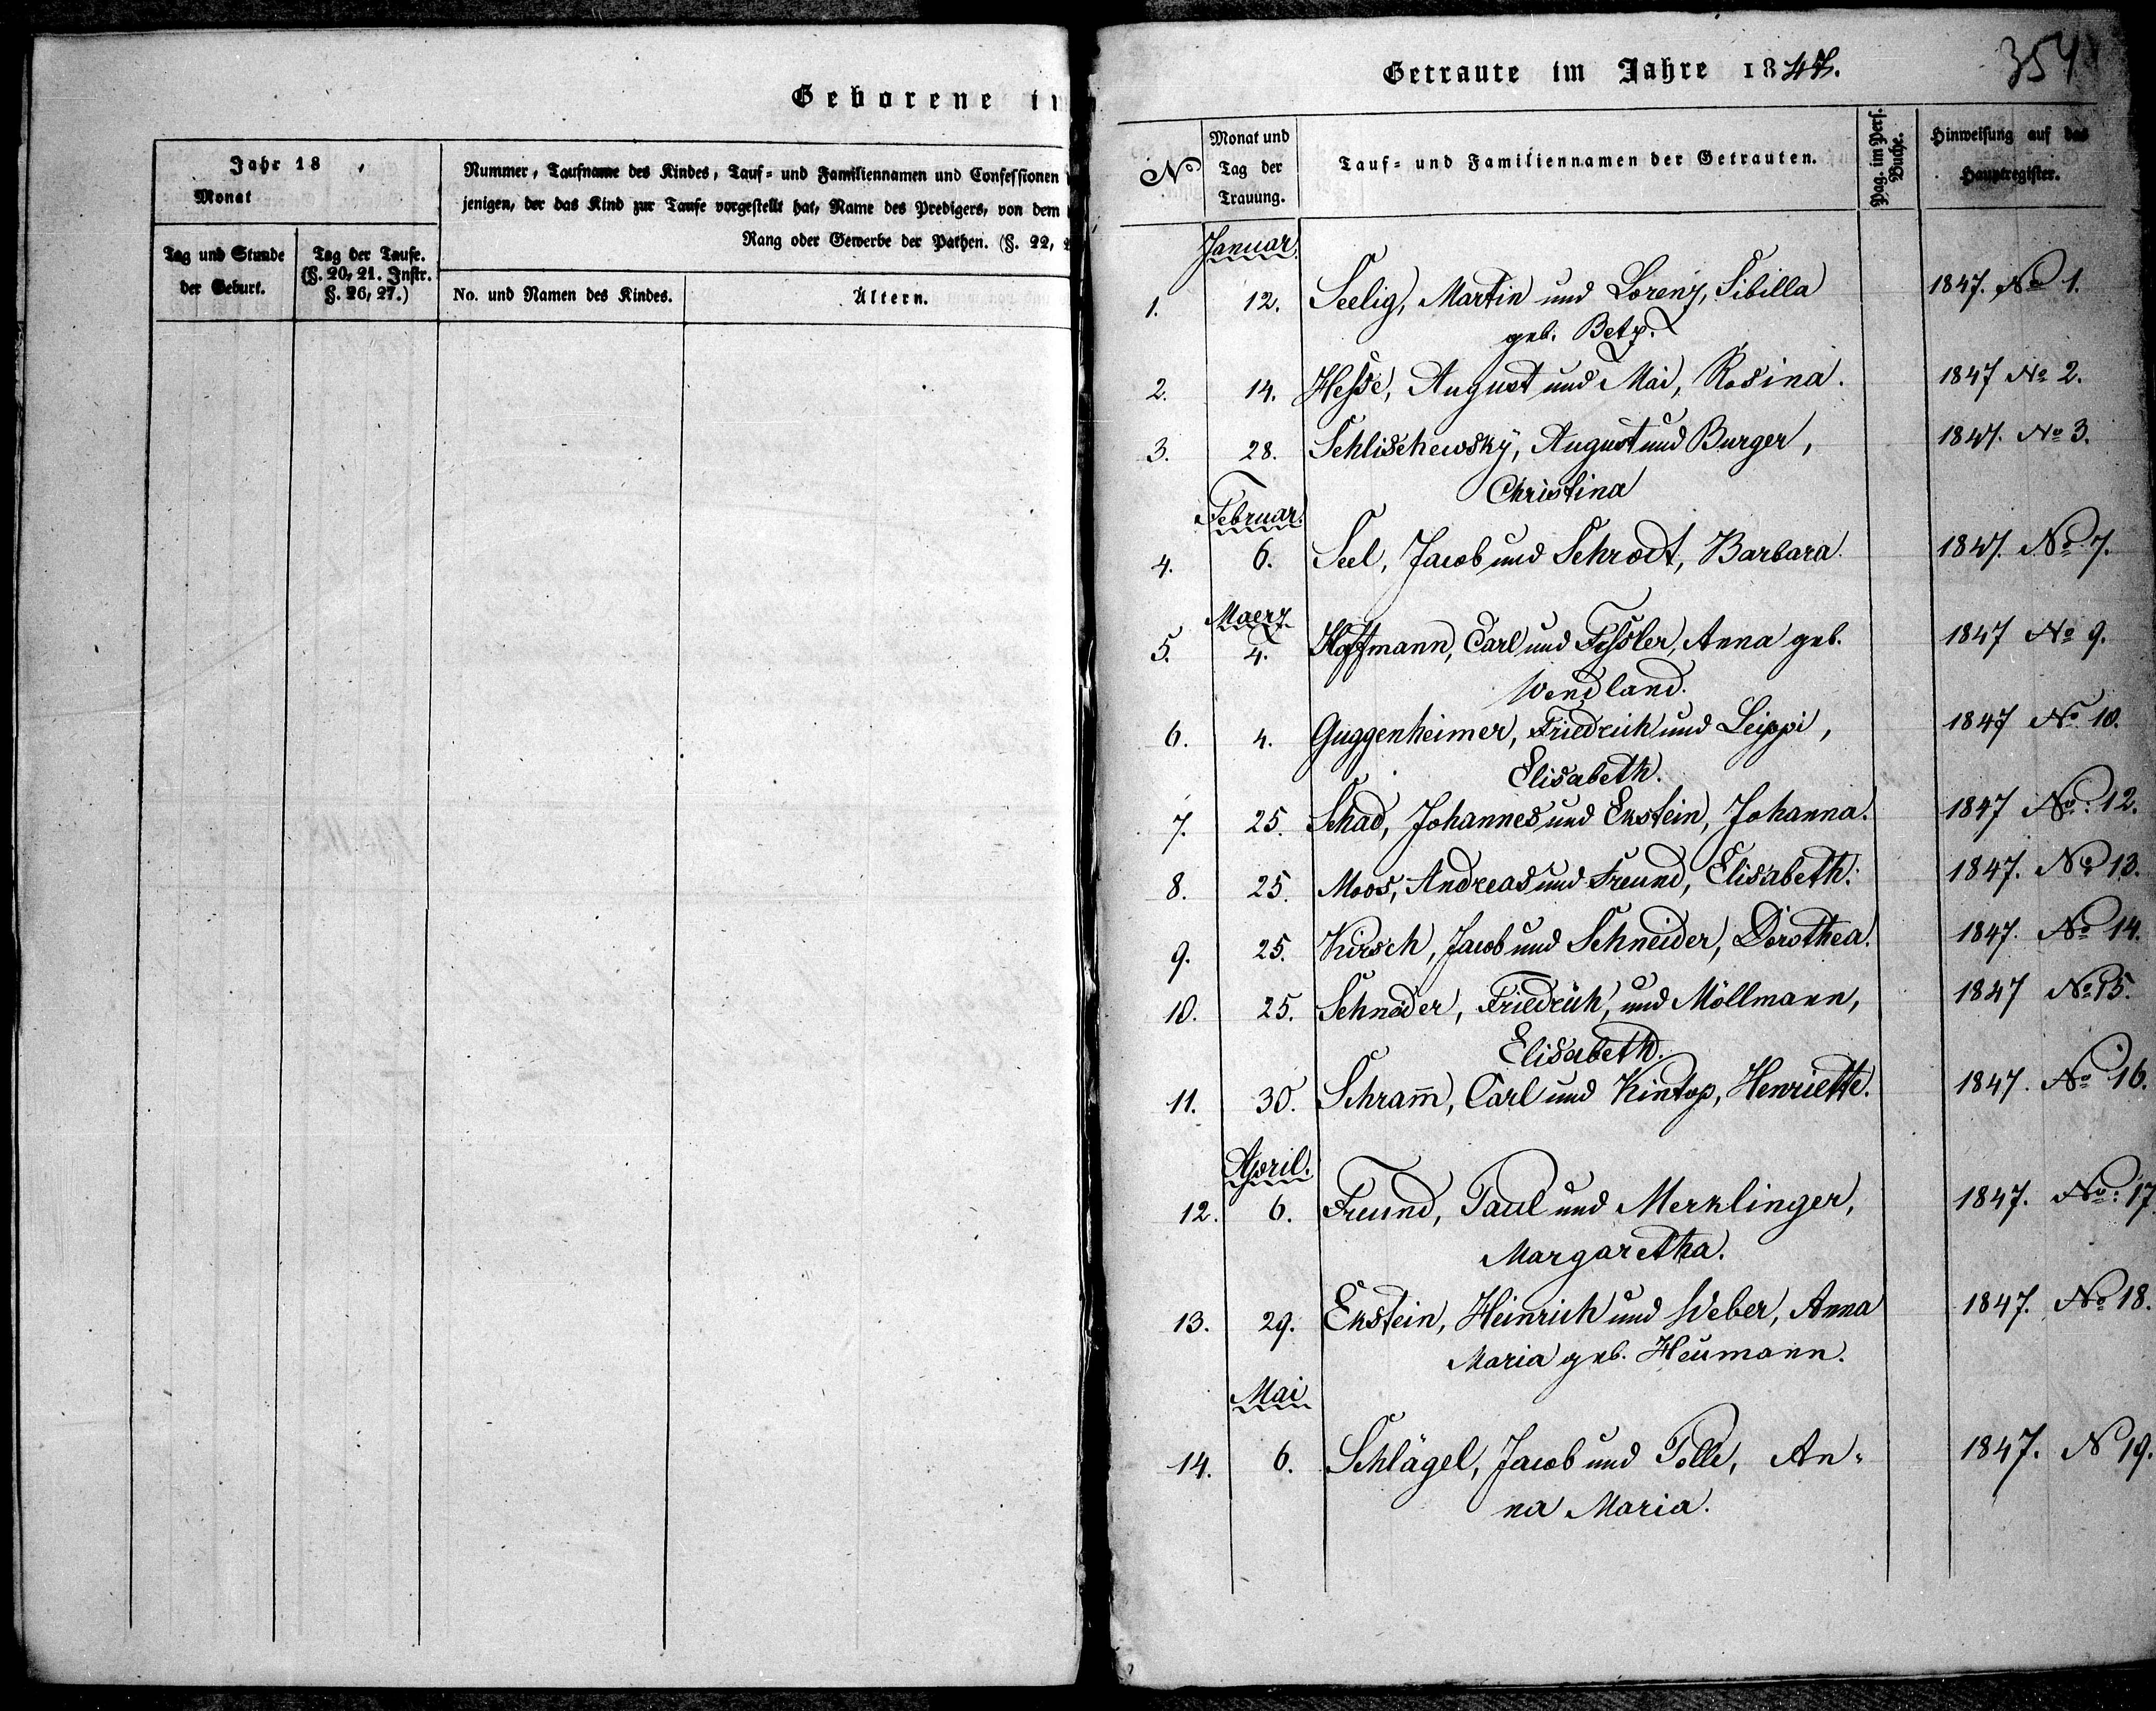 Geborene i
Jahr 18 ,
Monat
Tag und Stunde
der Geburt.
Tag der Taufe.
(§. 20, 21. Instr.
§. 26, 27.)
Nummer, Taufname des Kindes, Tauf- und Familiennamen und Confessionen
jenigen, der das Kind zur Taufe vorgestellt hat, Name des Predigers, von dem
Rang oder Gewerbe der Pathen. (§. 22,
No. und Namen des Kindes.
Ältern.
354
Getraute im Jahre 1847.
No
Monat und
Tag der
Trauung.
Tauf- und Familiennamen der Getrauten.
Pag. im Pers.
Buche.
Hinweisung auf das
Hauptregister.
Januar.
1. 12. Seelig, Martin und Lorenz, Sibilla 1847. No 1.
geb. Betz.
2. 14. Hesse, August und Mai, Rosina. 1847 No 2.
3. 28. Schlischewsky, August und Burger, 1847. No 3.
Christina
Februar.
4. 6. Seel, Jacob und Schrodt, Barbara. 1847. No 7.
Maerz
5. 4. Hoffmann, Carl und Fessler, Anna geb. 1847 No 9.
Wendland.
6. 4. Guggenheimer, Friedrich und Leippi, 1847 No 10.
Elisabeth.
7. 25. Schad, Johannes und Enstein, Johanna. 1847 No. 12.
8. 25. Moos, Andreas und Freund, Elisabeth. 1847. No 13.
9. 25. Kirsch, Jacob und Schneider, Dorothea. 1847. No 14.
10. 25. Schneider, Friedrich, und Möllmann, 1847 No 15.
Elisabeth.
11. 30. Schram̄, Carl und Kintop, Henriette. 1847. No 16.
April.
12. 6. Freund, Paul und Merklinger, 1847. No. 17.
Margaretha.
13. 29. Enstein, Heinrich und Weber, Anna 1847. No 18.
Maria geb. Heumann.
Mai
14. 6. Schlägel, Jacob und Tolle, An- 1847. N 19.
na Maria.